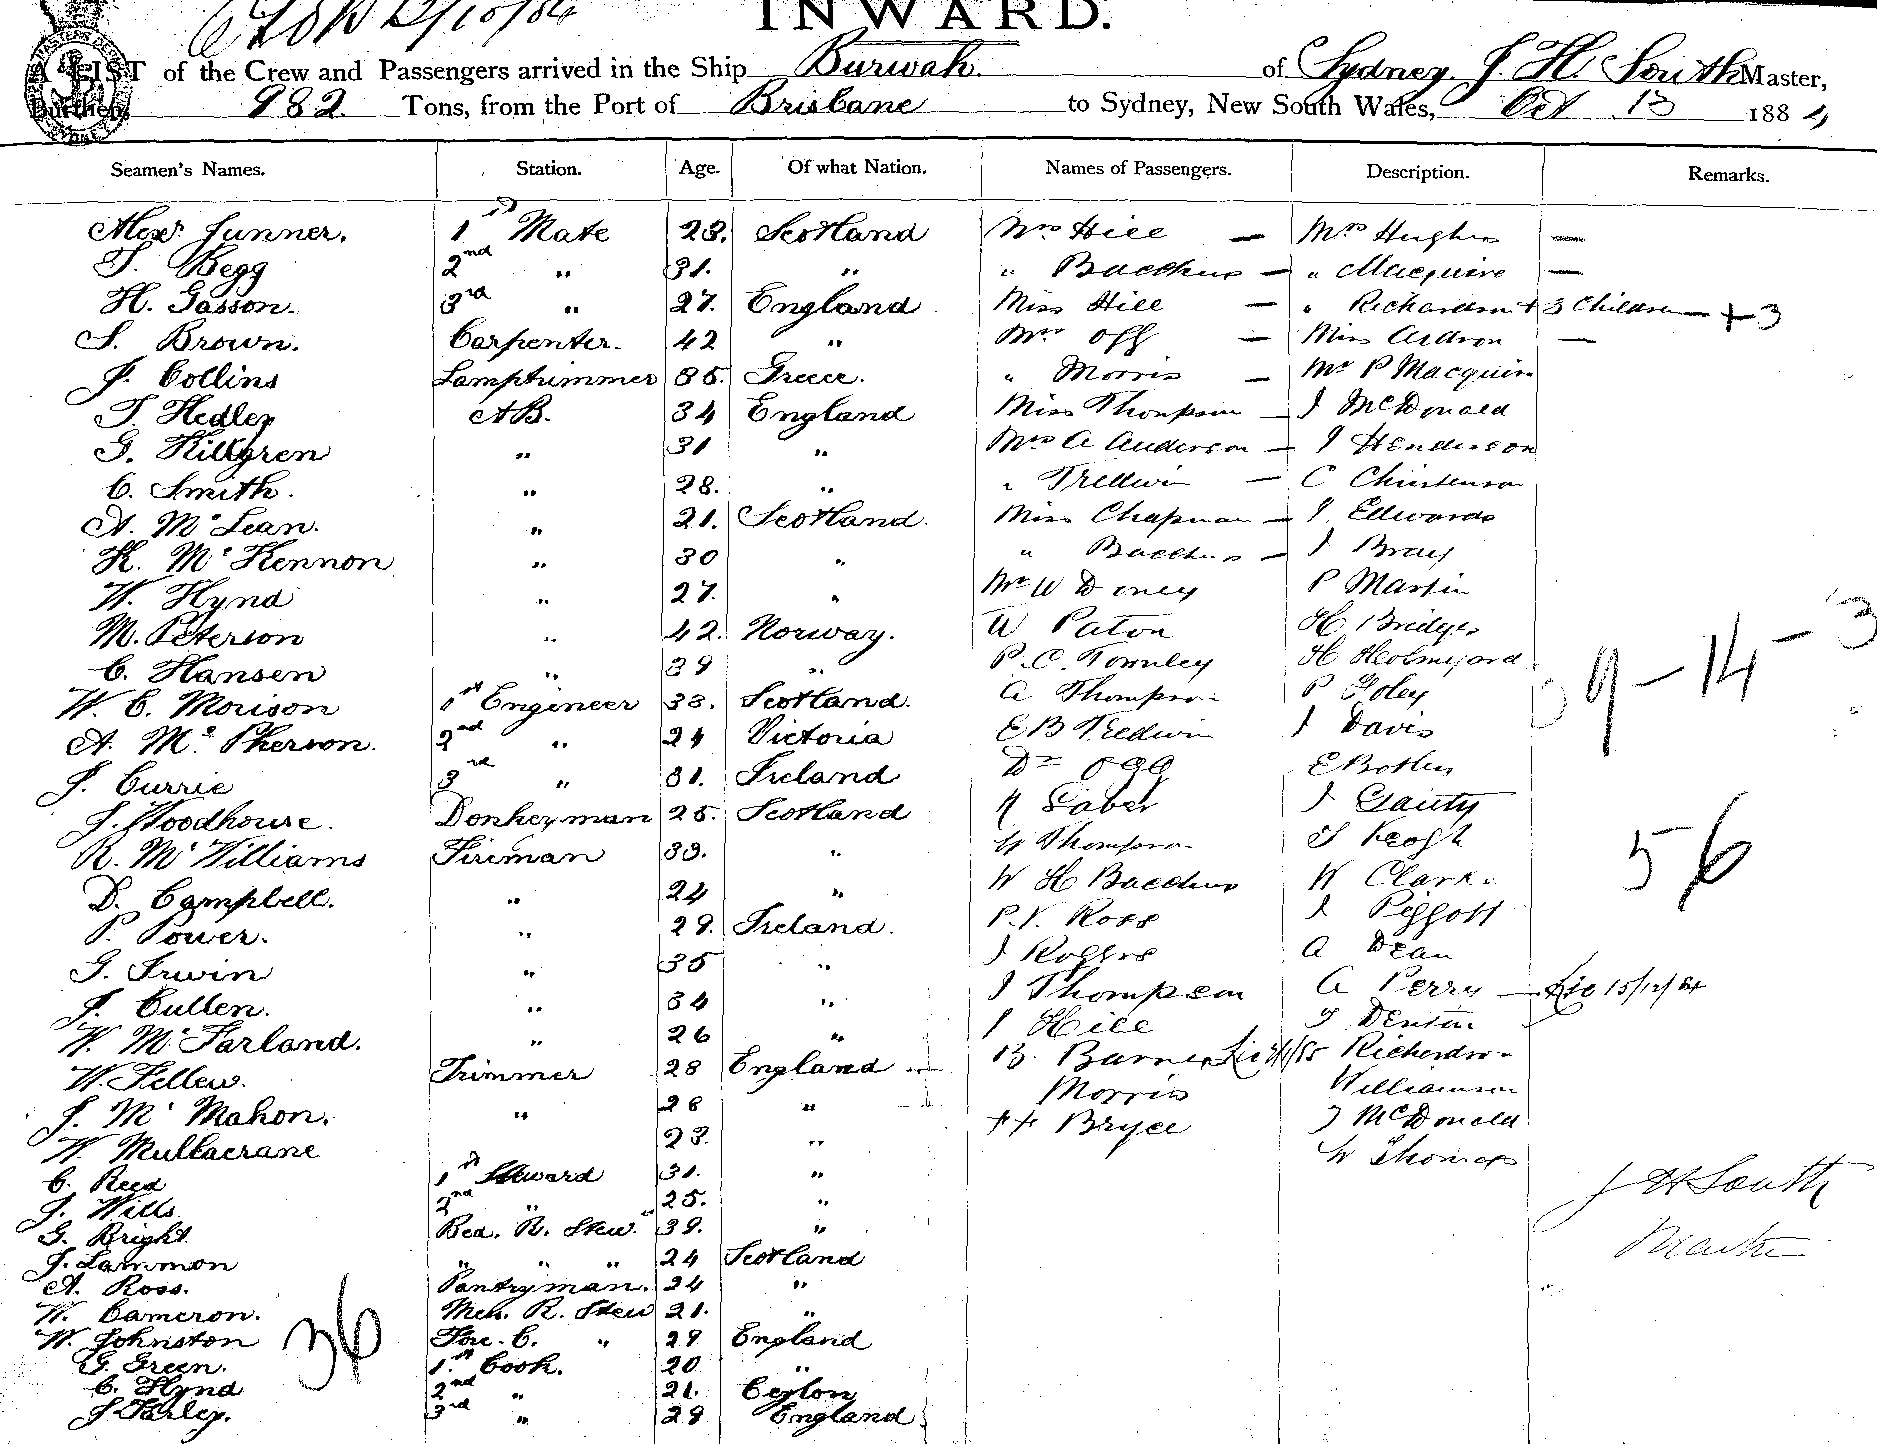 INWARD.
A LIST of the Crew and Passengers arrived in the Ship Burwah. of Sydney. J. H. South Master,
Burthen, 982. Tons, from the Port of Brisbane to Sydney, New South Wales, Oct 13 1884
Seamen's Names. Station. Age. Of what Nation. Names of Passengers. Description. Remarks.
Alexr. Sunner. 1st Mate 28. Scotland Mrs Hill — Mrs Hughes —
T. Begg 2nd " 31. " " Bacchus — " Macquire —
H. Gasson. 3rd " 27. England Miss Hill — " Richardson + 3 Children — + 3
S. Brown. Carpenter. 42 " Mrs Ogg — Miss Ardron —
J. Collins Lamptrimmer 35. Greece. " Morris — Mr P Macquire
T. Hedley AB. 34 England Miss Thompson — J McDonald
G. Killgren " 31 " Mrs A Anderson — J Henderson
C. Smith. " 28. " " Tredwin — C Christenson
A. McLean. " 21. Scotland. Miss Chapman — J. Edwards
K. McKennon " 30 " " Bacchus — J Bray
W. Hynd " 27. " Mr W Doney P Martin
M. Peterson " 42. Norway. W Paton H Bridges
C. Hansen " 39 " P. C. Townley H Holmyard
W. C. Morison 1st Engineer 33. Scotland. A Thompson P Foley
A. McPherson. 2nd " 24 Victoria E B Tredwin J Davis
J. Currie 3rd " 31. Ireland Dr Ogg E Botten
J. Woodhouse. Donkeyman 25. Scotland Saber J
R. McWilliams Fireman 33. " W Thompson J Keogh
D. Campbell. " 24 " W H Bacchus W Clark
P. Power. " 29. Ireland. P. V. Ross J Piggott
G. Irwin " 35 " J Rogers A Dean
J. Cullen. " 34 " J Thompson A Perry — Lic 15/12/84
W. McFarland. " 26 " J Hill J Denton
W. Fellew. Trimmer 28 England B. Barnes Richardson
J. McMahon. " 26 " Morris Williamson
W. Mullacrane 23. " ++ Bryce J McDonald
C. Reed 1st Steward 31. " W Thomas
J. Wills 2nd " 25. "
G. Bright Bed. R. Stew. 39. "
J. Lammon " " " 24 Scotland
A. Ross. Pantryman. 24 "
W. Cameron. Mess. R. Stew 21. "
W. Johnston Fore. C. " 29 England
G. Green. 1st Cook. 20 "
C. Hynd 2nd " 21. Ceylon
J. Farley. 3rd " 29 England
9 - 14 - 3
56
J H South
Master
36